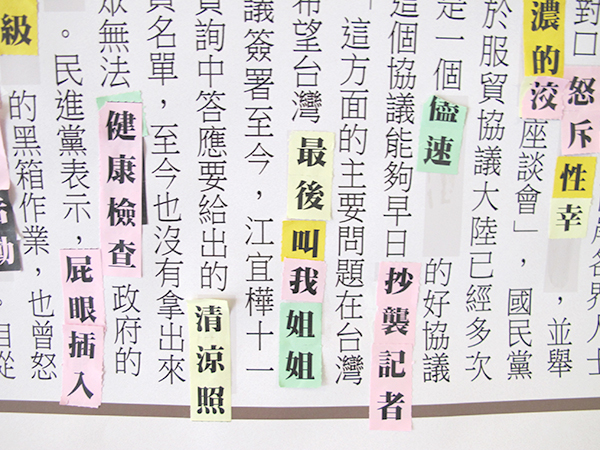 各界人士
對口怒斥性幸，並舉
濃的洨座談會」，國民黨
於服貿協議大陸已經多次
定一個儘速的好協議
這個協議能夠早日抄襲記者
「這方面的主要問題在台灣
希望台灣最後叫我姐姐
議簽署至今，江宜樺十一
詢中答應要給出的清涼照
員名單，至今也沒有拿出來
眾無法健康檢查政府的
。民進黨表示，屁眼插入
級的黑箱作業，也曾怒
動。自從